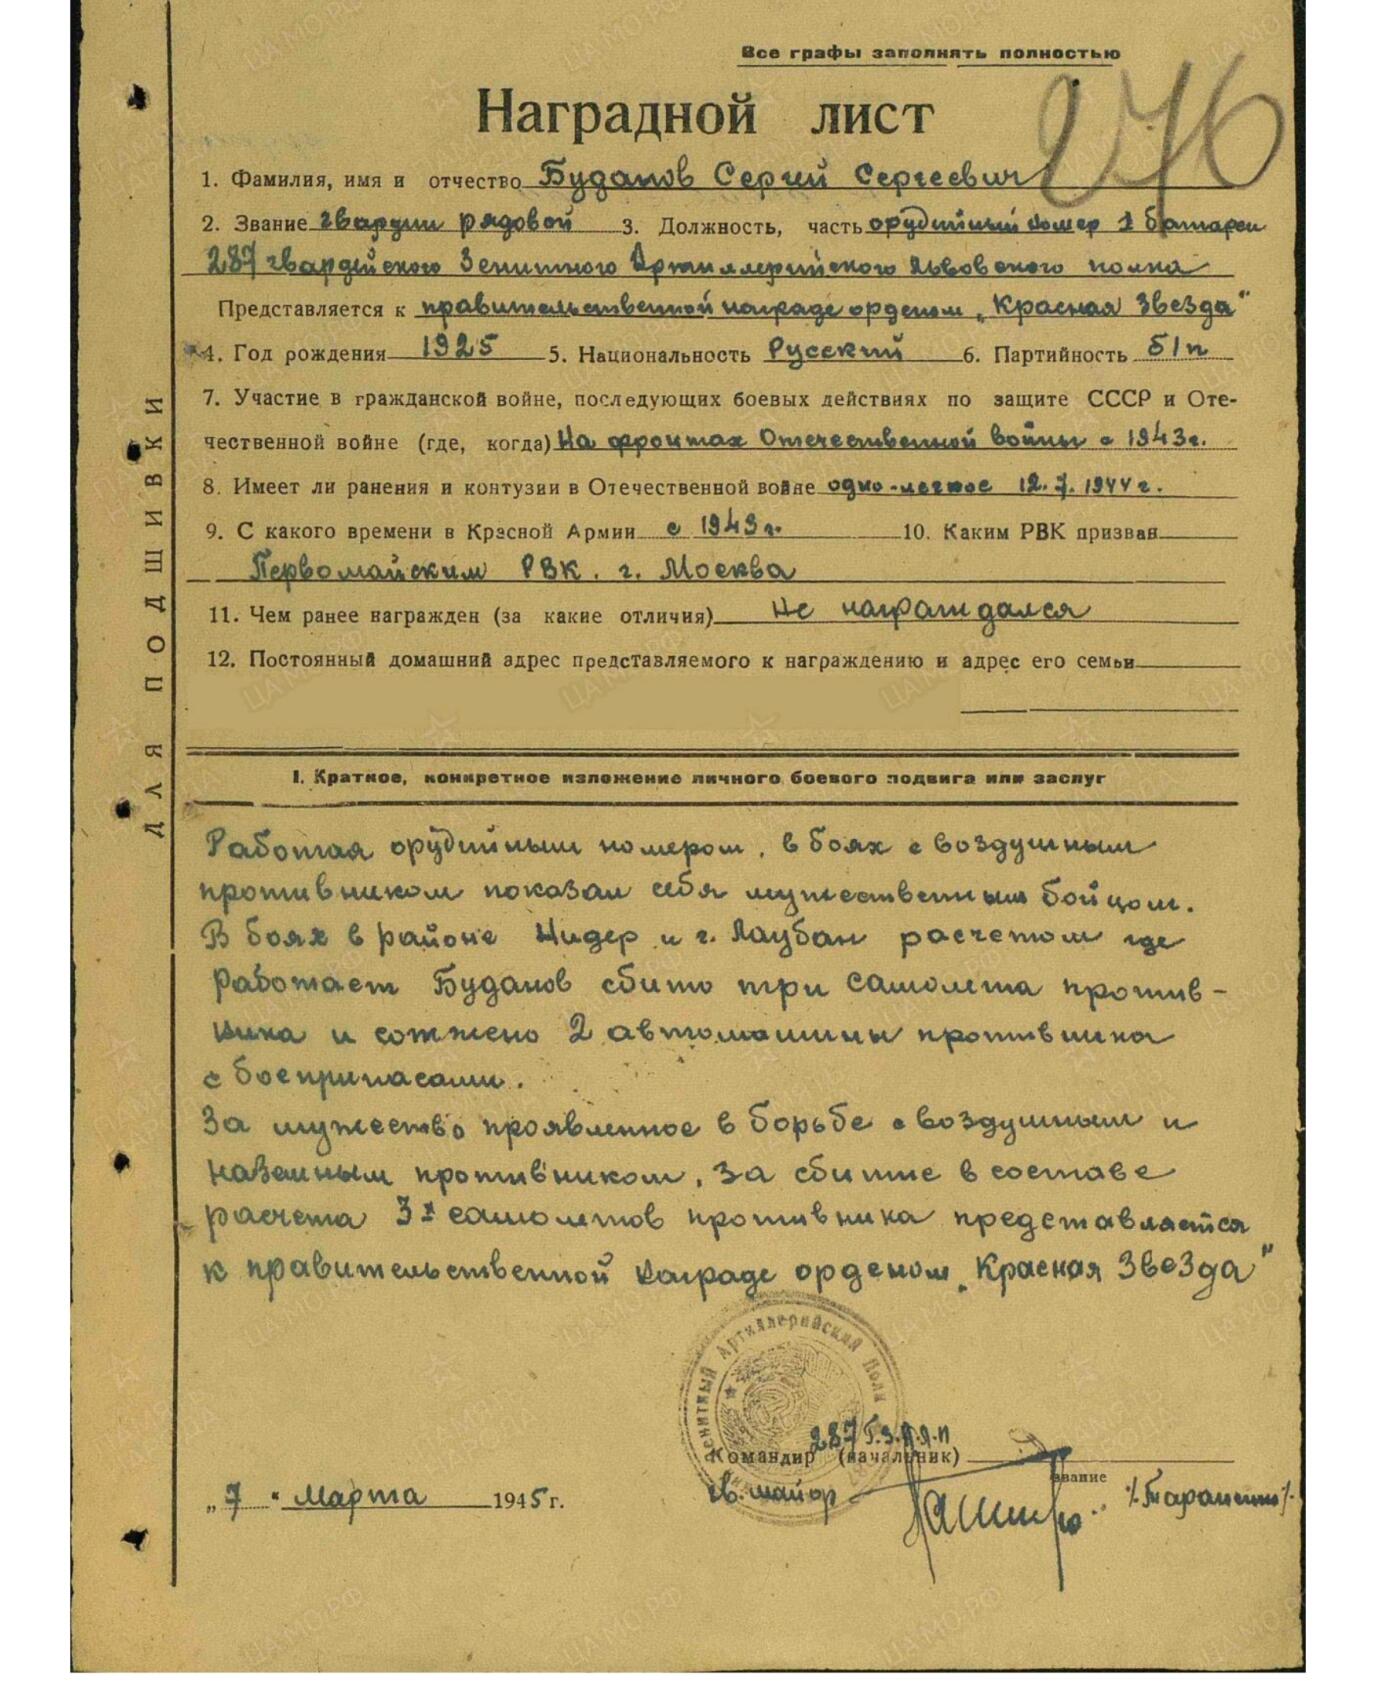 Все графы заполнять полностью
276
Наградной лист
1. Фамилия, имя и отчество Буданов Сергей Сергеевич
2. Звание гвардии рядовой 3. Должность, часть орудийный номер 1 батареи
287 гвардейского Зенитного Артиллерийского Львовского полка
Представляется к правительственной награде орденом „Красная Звезда"
4. Год рождения 1925 5. Национальность Русский 6. Партийность б/п
7. Участие в гражданской войне, последующих боевых действиях по защите СССР и Оте-
чественной войне (где, когда) На фронтах Отечественной войны с 1943г.
8. Имеет ли ранения и контузии в Отечественной войне одно-легкое 12.7.1944г.
9. С какого времени в Красной Армии с 1943г. 10. Каким РВК призван
Первомайским РВК. г. Москва
11. Чем ранее награжден (за какие отличия) Не награждался
12. Постоянный домашний адрес представляемого к награждению и адрес его семьи
ДЛЯ ПОДШИВКИ
I. Краткое, конкретное изложение личного боевого подвига или заслуг
Работая орудийным номером, в боях с воздушным
противником показал себя мужественным бойцом.
В боях в районе Нидер и г. Лаубан расчетом где
работает Буданов сбито три самолета против-
ника и сожжено 2 автомашины противника
с боеприпасами.
За мужество проявленное в борьбе с воздушным и
наземным противником, за сбитие в составе
расчета 3х самолетов противника представляется
к правительственной награде орденом „Красная Звезда"
Зенитный Артиллерийский Полк
287 Г.З.А.П
Командир (начальник)
звание
гв. майор /Тараненко/
„7" Марта 1945г.